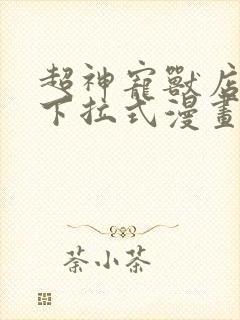 超神寵獸店
下拉式漫畫
荼小茶